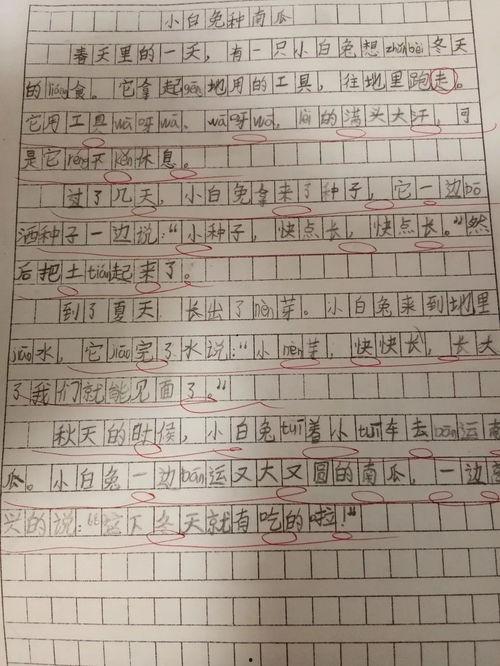 小白兔种南瓜
春天里的一天，有一只小白兔想zhǔnbèi冬天
的liáng食。它拿起gēng地用的工具，往地里跑走。
它用工具wā呀wā，wā呀wā，lèi的满头大汗，可
是它réng不kěn休息。
过了几天，小白兔拿来了种子，它一边bō
洒种子一边说：“小种子，快点长，快点长。”然
后把土tián起来了。
到了夏天 长出了nèn芽。小白兔来到地里
jiāo水，它jiāo完了水说：“小nèn芽，快快长，长大
了我们就能见面了。”
秋天的时候，小白兔tuī着小tuī车去bān运南
瓜。小白兔一边bān运又大又圆的南瓜，一边高
兴的说：“这下冬天就有吃的啦！“